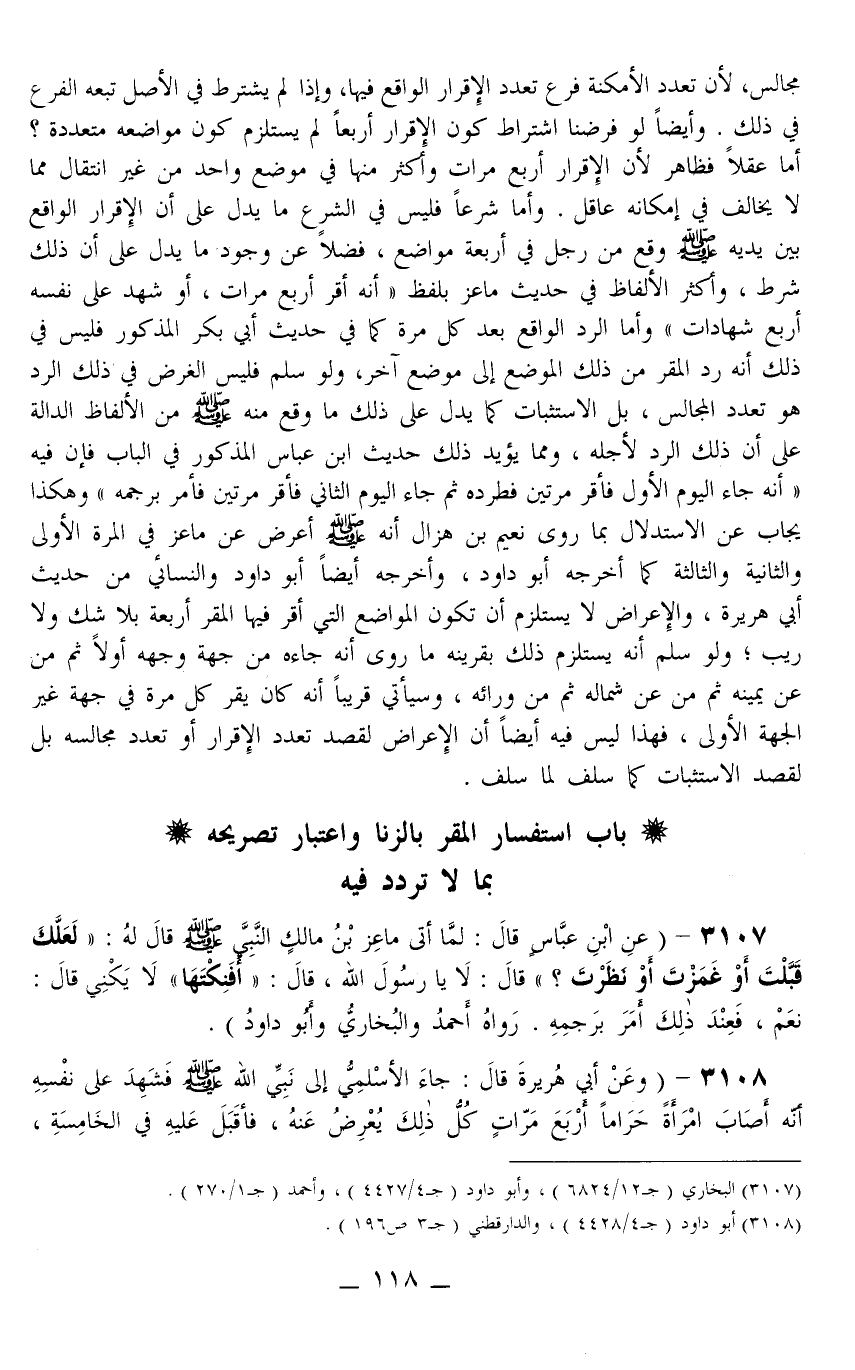 مجالس، لأن تعدد الأمكنة فرع تعدد الإقرار الواقع فيها، وإذا لم يشترط في الأصل تبعه الفرع
في ذلك . وأيضاً لو فرضنا اشتراط كون الإقرار أربعاً لم يستلزم كون مواضعه متعددة ؟
أما عقلاً فظاهر لأن الإقرار أربع مرات وأكثر منها في موضع واحد من غير انتقال مما
لا يخالف في إمكانه عاقل . وأما شرعاً فليس في الشرع ما يدل على أن الإقرار الواقع
بين يديه ﷺ وقع من رجل في أربعة مواضع ، فضلاً عن وجود ما يدل على أن ذلك
شرط ، وأكثر الألفاظ في حديث ماعز بلفظ « أنه أقر أربع مرات ، أو شهد على نفسه
أربع شهادات » وأما الرد الواقع بعد كل مرة كما في حديث أبي بكر المذكور فليس في
ذلك أنه رد المقر من ذلك الموضع إلى موضع آخر، ولو سلم فليس الغرض في ذلك الرد
هو تعدد المجالس ، بل الاستثبات كما يدل على ذلك ما وقع منه ﷺ من الألفاظ الدالة
على أن ذلك الرد لأجله ، ومما يؤيد ذلك حديث ابن عباس المذكور في الباب فإن فيه
« أنه جاء اليوم الأول فأقر مرتين فطرده ثم جاء اليوم الثاني فأقر مرتين فأمر برجمه » وهكذا
يجاب عن الاستدلال بما روى نعيم بن هزال أنه ﷺ أعرض عن ماعز في المرة الأولى
والثانية والثالثة كما أخرجه أبو داود ، وأخرجه أيضاً أبو داود والنسائي من حديث
أبي هريرة ، والإعراض لا يستلزم أن تكون المواضع التي أقر فيها المقر أربعة بلا شك ولا
ريب ؛ ولو سلم أنه يستلزم ذلك بقرينه ما روى أنه جاءه من جهة وجهه أولاً ثم من
عن يمينه ثم من عن شماله ثم من ورائه ، وسيأتي قريباً أنه كان يقر كل مرة في جهة غير
الجهة الأولى ، فهذا ليس فيه أيضاً أن الإعراض لقصد تعدد الإقرار أو تعدد مجالسه بل
لقصد الاستثبات كما سلف لما سلف .
باب استفسار المقر بالزنا واعتبار تصريحه
بما لا تردد فيه
٣١٠٧ – ( عنِ ابْنِ عبَّاسٍ قالَ : لمَّا أتى ماعِز بْنُ مالكٍ النَّبِيَّ ﷺ قالَ لهُ : « لَعَلَّكَ
قَبَّلْتَ أَوْ غَمَزْتَ أَوْ نَظَرْتَ ؟ » قالَ : لَا يا رسُولَ الله ، قالَ : « أَفَنِكْتَهَا» لَا يَكْنِي قالَ :
نعَمْ ، فَعِنْدَ ذٰلِكَ أَمَرَ بَرَجمِهِ . رَواهُ أَحمدُ والبُخاريُّ وأَبُو داودُ ) .
٣١٠٨ – ( وعَنْ أبي هُريرةَ قالَ : جاءَ الأسْلمِيُّ إلى نَبِيِّ الله ﷺ فَشَهِدَ على نفْسِهِ
أنّه أَصَابَ امْرَأَةً حَرَاماً أَرْبَعَ مَرّاتٍ كُلُّ ذٰلِكَ يُعْرِضُ عَنهُ ، فأقبَلَ عَليهِ في الخَامِسَةِ ،
(٣١٠٧) البخاري ( جـ٦٨٢٤/١٢ ) ، وأبو داود ( جـ٤٤٢٧/٤ ) ، وأحمد ( جـ٢٧٠/١ ) .
(٣١٠٨) أبو داود ( جـ٤٤٢٨/٤ ) ، والدارقطني ( جـ٣ ص١٩٦ ) .
– ١١٨ –